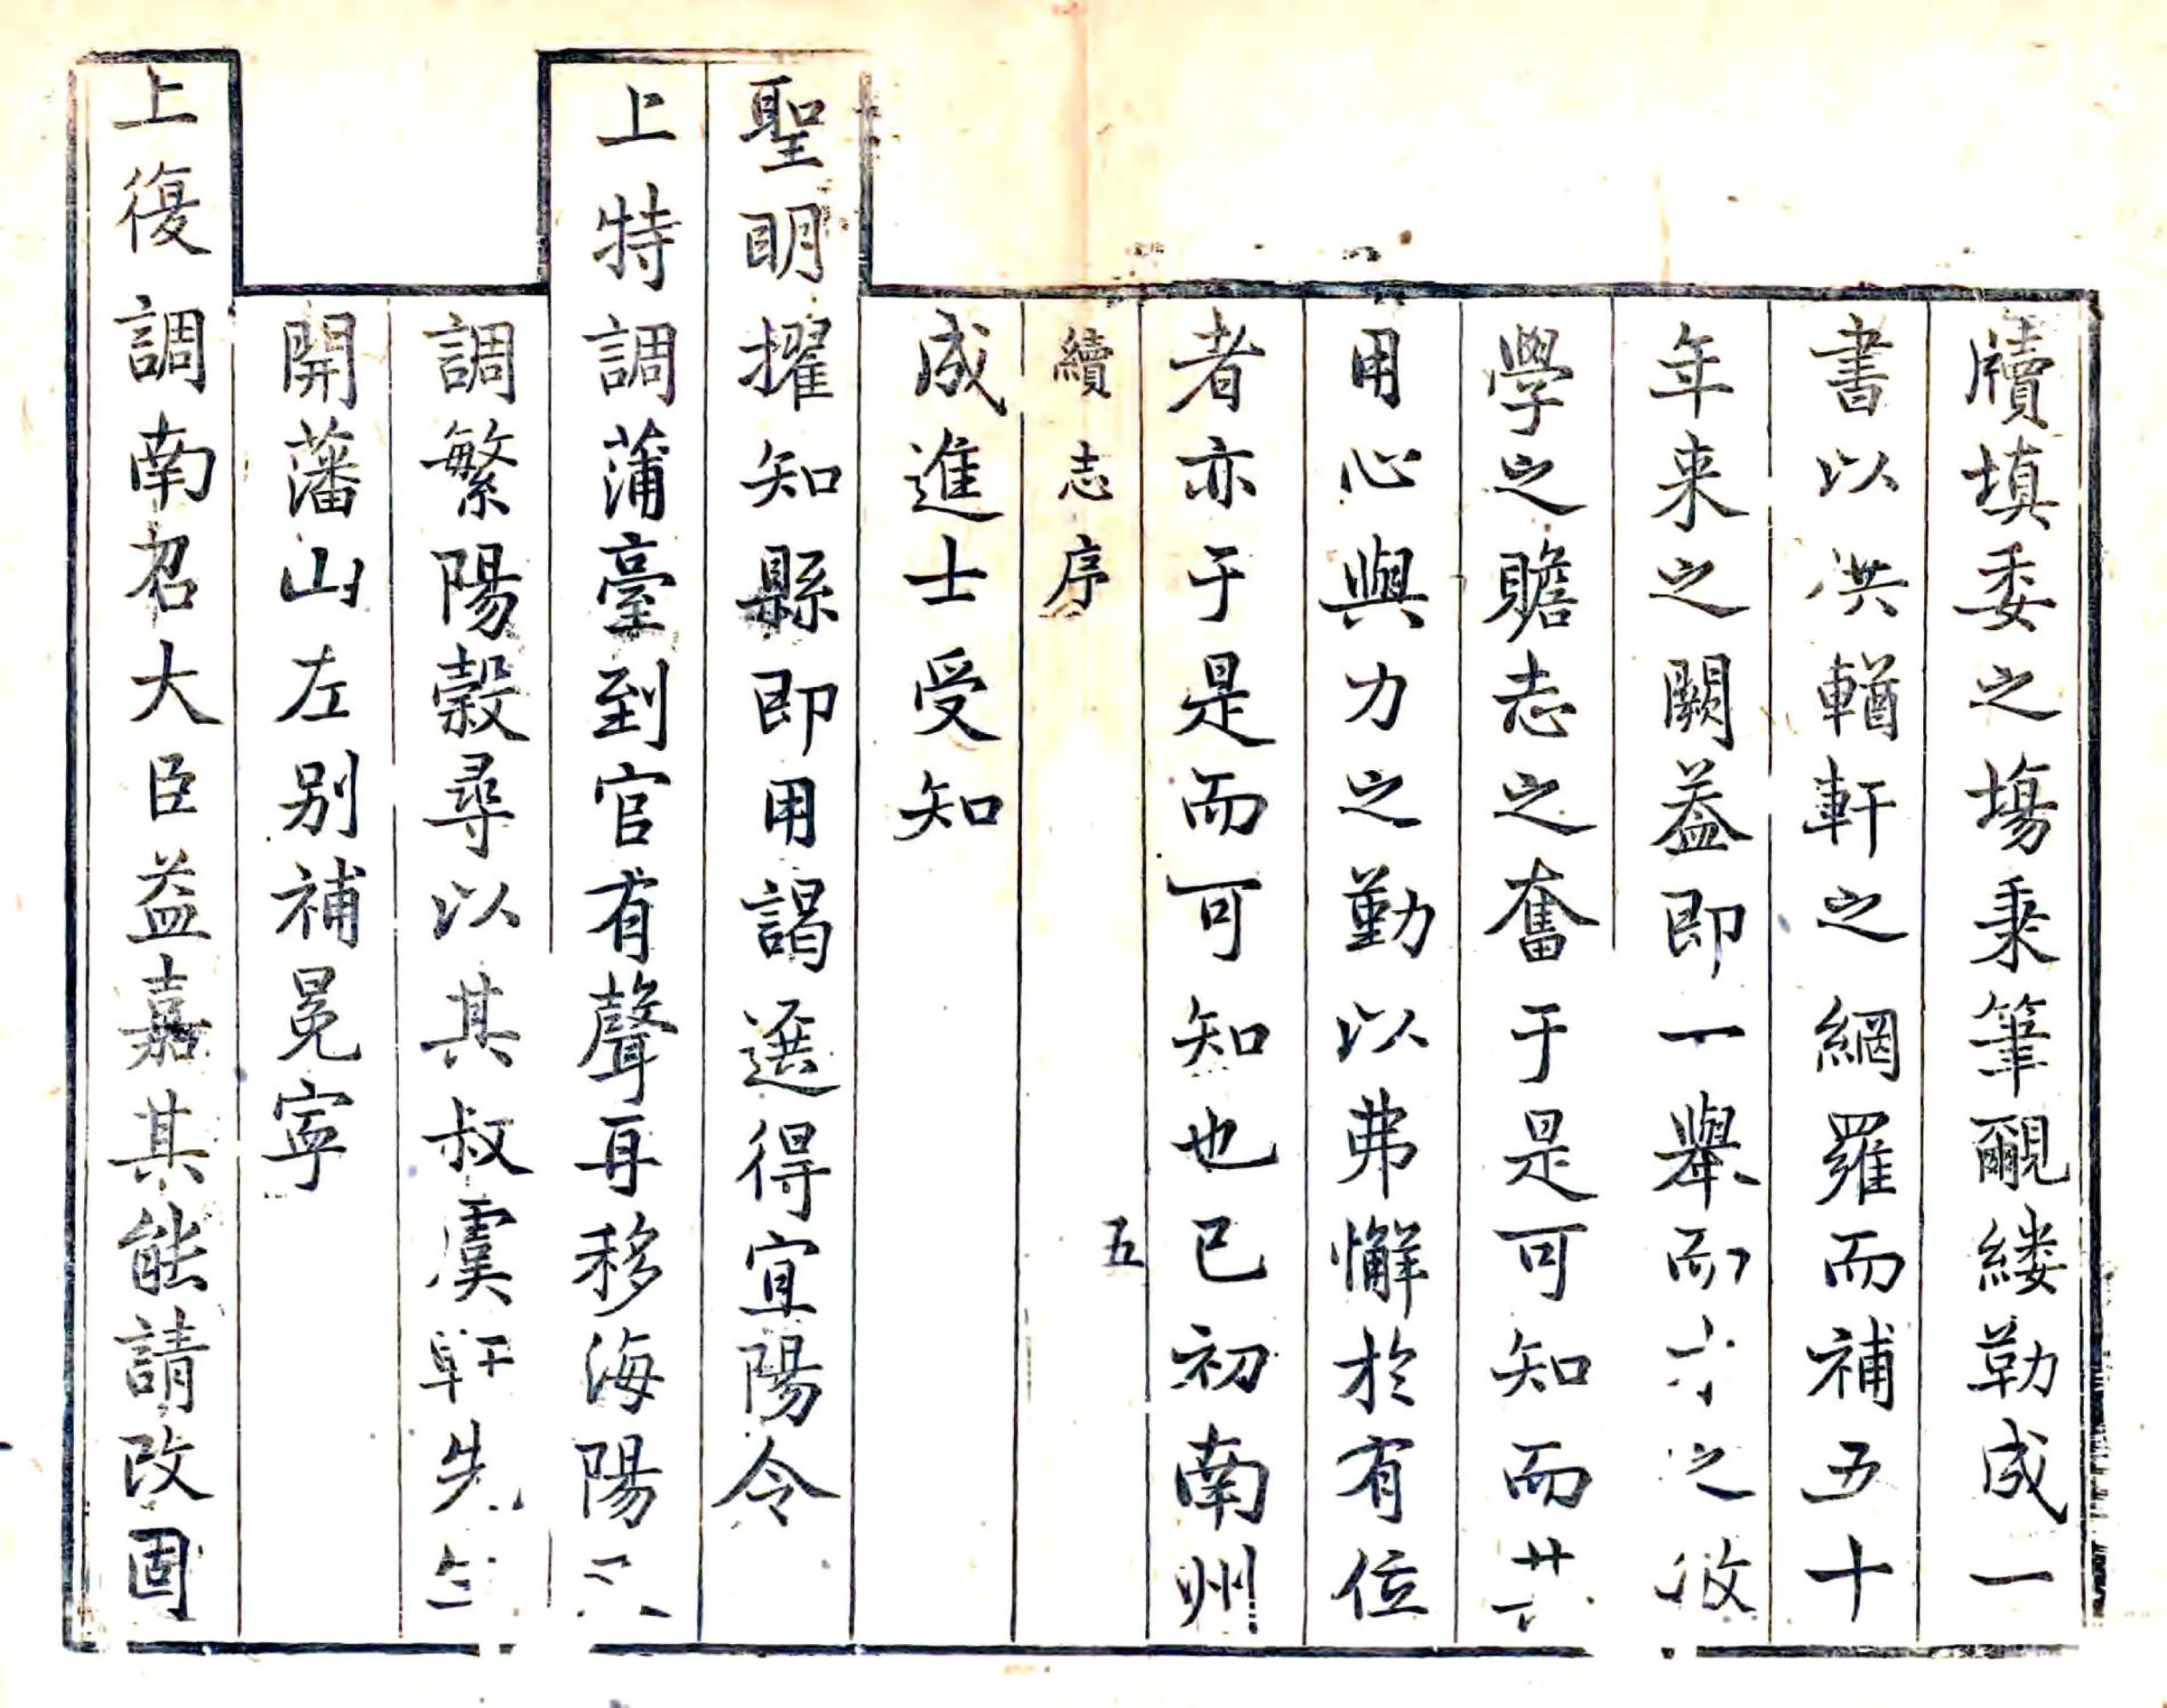 牘填委之塲秉筆覼縷勒成一
書以洪輶軒之網羅而補五十
年来之闕葢即一舉而之
學之贍志之奮于是可知而其
用心與力之勤以弗懈於有位
者亦于是而可知也已初南州
續志序 五
成進士受知
聖明擢知縣即用謁選得宜陽令
上特調蒲臺到官有聲再移海陽
調繁陽穀尋以其叔虞軒先生
開藩山左别補冕寧
上復調南召大臣益嘉其能請改固